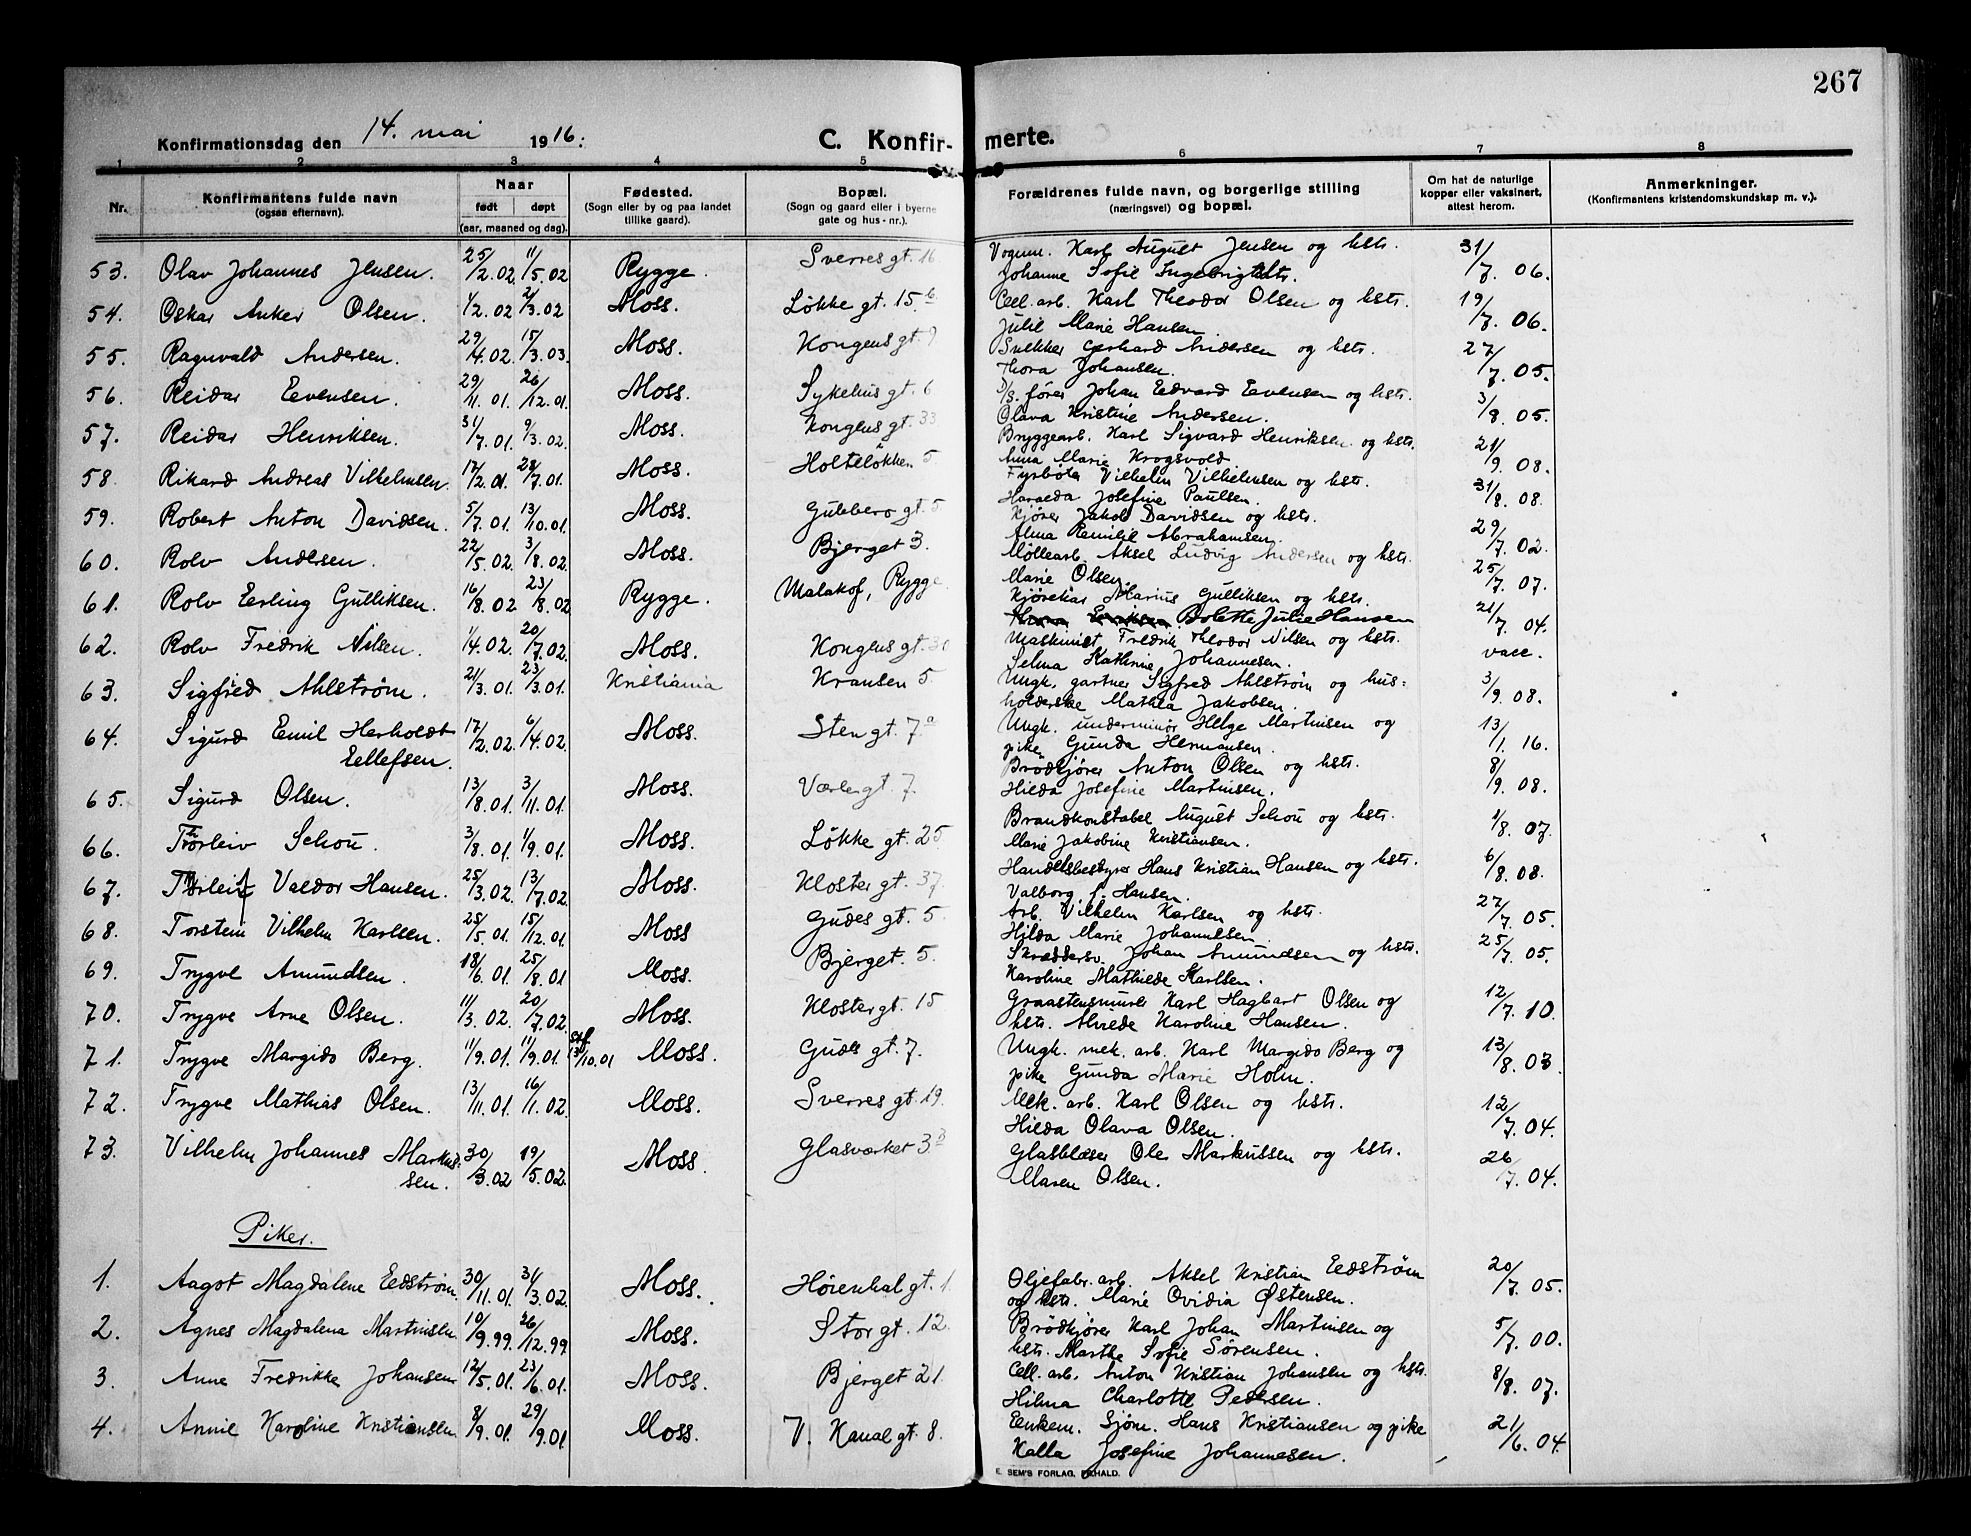 267
Konfirmationsdag den 14. mai 1916:
C. Konfir-merte.
1 2 3 4 5 6 7 8
Nr. Konfirmantens fulde navn (ogsaa efternavn). Naar født døpt (aar, maaned og dag). Fødested. (Sogn eller by og paa landet tillike gaard). Bopæl. (Sogn og gaard eller i byerne gate og hus-nr.). Forældrenes fulde navn, og borgerlige stilling (næringsvei) og bopæl. Om hat de naturlige kopper eller vaksinert, attest herom. Anmerkninger. (Konfirmantens kristendomskundskap m. v.).
53. Olav Johannes Jensen. 25/2.02 11/5.02 Rygge. Sverres gt. 16 Vognm. Karl August Jensen og hstr. 31/7.06.
Johanne Sofie Ingebrigtstr.
54. Oskar Anker Olsen. 1/2.02 2/3.02 Moss. Løkke gt. 15 b Cell. arb. Karl Theodor Olsen og hstr. 19/7.06.
Julie Marie Hansen.
55. Ragnvald Andersen. 29/4.02. 15/3.03. Moss. Kongens gt. 9 Snekker Gerhard Andersen og hstr. 27/7.05.
Thora Johansen.
56. Reidar Evensen. 29/11.01. 26/12.01. Moss. Sykehus gt. 6 D/s. fører Johan Edvard Evensen og hstr. 3/8.05.
Olava Kristine Andersen.
57. Reidar Henriksen. 31/7.01. 9/3.02. Moss. Kongens gt. 33 Bryggearb. Karl Sigvard Henriksen og hstr. 21/9.08.
Anna Marie Krogsvold
58. Rikard Andreas Vilhelmsen. 17/2.01. 28/7.01. Moss. Holteløkken 5 Fyrbøter Vilhelm Vilhelmsen og hstr. 31/8.08.
Haralda Josefine Paulsen.
59. Robert Anton Davidsen. 5/7.01. 13/10.01. Moss. Gudbero gt. 5 Kjører Jakob Davidsen og hstr. 29/7.02.
Alma Ramilie Abrahamsen.
60. Rolv Andersen. 22/5.02. 3/8.02. Moss. Bjerget 3. Møllearb. Aksel Ludvig Andersen og hstr. 25/7.07.
Marie Olsen.
61. Rolv Erling Gulliksen. 16/8.02 23/8.02 Rygge. Malakof, Rygge Kjørekar Marius Gulliksen og hstr. 21/7.04.
Bolette Julie Hansen
62. Rolv Fredrik Nilsen. 1/4.02. 20/7.02. Moss. Kongens gt. 30 Maskinist Fredrik Theodor Nilsen og hstr. vacc.
Selma Kathrine Johannesen.
63. Sigfred Ahlstrøm. 21/3.01. 23/3.01. Kristiania Kransen 5 Ungk. gartner Sigfred Ahlstrøm og hus= 3/9.08.
holderske Mathea Jakobsen.
64. Sigurd Emil Herholdt 17/2.02. 6/4.02. Moss. Sten gt. 7 a Ungk. underminør Helge Martinsen og 13/1.16.
Ellefsen. pike Gunda Hermansen.
65. Sigurd Olsen. 13/8.01. 3/11.01. Moss. Værlegt 7. Brødkjører Anton Olsen og hstr. 8/9.08.
Hilda Josefine Martinsen.
66. Thorleiv Schou. 3/8.01. 1/9.01. Moss. Løkke gt. 25 Brandkonstabel August Schou og hstr. 1/8.07.
Marie Jakobine Kristiansen.
67. Thorleif Valdor Hansen. 25/3.02. 13/7.02. Moss. Kloster gt. 37. Handelsbestyrer Hans Kristian Hansen og hstr. 6/8.08.
Valborg f. Hansen.
68. Torstein Vilhelm Karlsen. 25/5.01. 15/12.01. Moss Gudes gt. 5 Arb. Vilhelm Karlsen og hstr. 27/7.05.
Hilda Marie Johannesen
69. Trygve Amundsen. 18/6.01. 25/8.01 Moss. Bjerget. 5. Skræddersv. Johan Amundsen og hstr. 25/7.05.
Karoline Mathilde Karlsen.
70. Trygve Arne Olsen. 11/3.02. 20/7.02. Moss. Kloster gt. 15 Graastensmurer Karl Hagbart Olsen og 12/7.10.
hstr. Alvilde Karoline Hansen.
71. Trygve Margido Berg. 11/9.01. 11/9.01. stf. 13/10.01 Moss. Gudes gt. 7. Ungk. mek. arb. Karl Margido Berg og 13/8.03
pike Gunda Marie Holm.
72. Trygve Mathias Olsen. 13/11.01. 16/1.02. Moss. Sverres gt. 19. Mek. arb. Karl Olsen og hstr. 12/7.04.
Hilda Olava Olsen.
73. Vilhelm Johannes Markus= 30/3.02 19/5.02. Moss. Glasværket 3 B Glasblæser Ole Markussen og hstr. 26/7.04.
sen. Maren Olsen.
Piker.
1. Aagot Magdalene Edstrøm. 30/11.01. 31/3.02. Moss. Høienhal gt. 1. Oljefabr. arb. Aksel Kristian Edstrøm 20/7.05.
og hstr. Marie Ovidia Østensen.
2. Agnes Magdalena Martinsen 10/9.99. 26/12.99. Moss. Stor gt. 12. Brødkjører Karl Johan Martinsen og 5/7.00.
hstr. Marthe Sofie Sørensen.
3. Anne Fredrikke Johansen 12/5.01. 23/6.01. Moss. Bjerget 21. Cell. arb. Anton Kristian Johansen og hstr. 8/8.07.
Hilma Charlotte Pedersen.
4. Annie Karoline Kristiansen 8/9.01. 29/9.01 Moss. V. Kanal gt. 8. Enkem. Sjøm. Hans Kristiansen og pike 21/6.04.
Kalla Josefine Johannesen.
E. SEM'S FORLAG, FR.HALD.